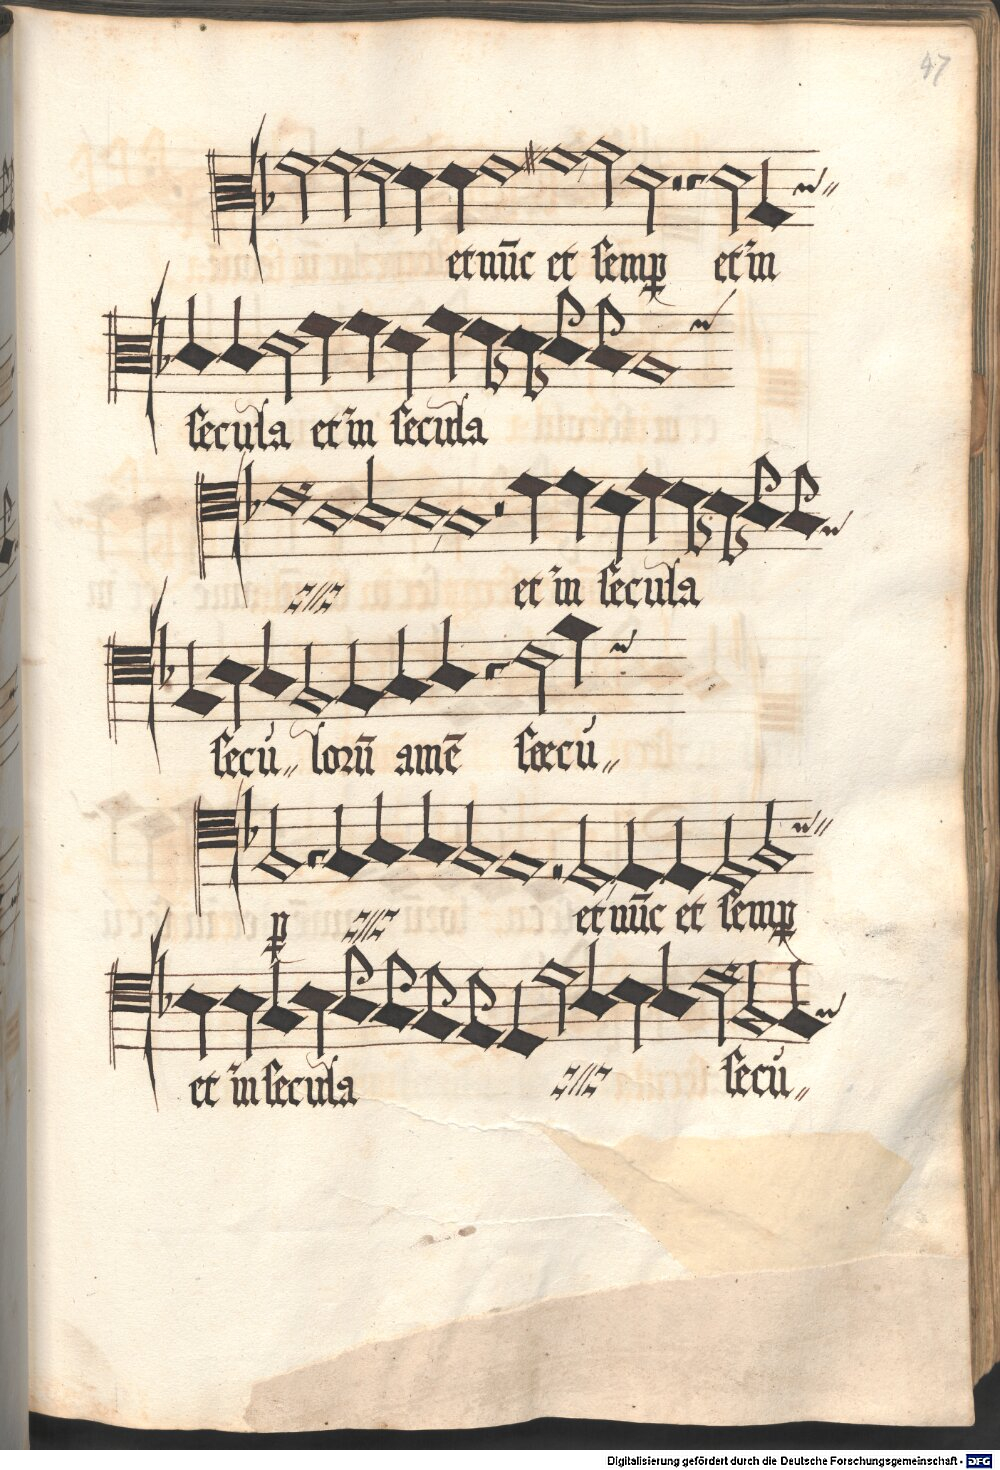 47
et nūc et semꝑ et in
secula et in secula
et in secula
secu„ lorū amē sæcu„
ꝑ et nūc et semꝑ
et in secula secu„
Digitalisierung gefördert durch die Deutsche Forschungsgemeinschaft - DFG